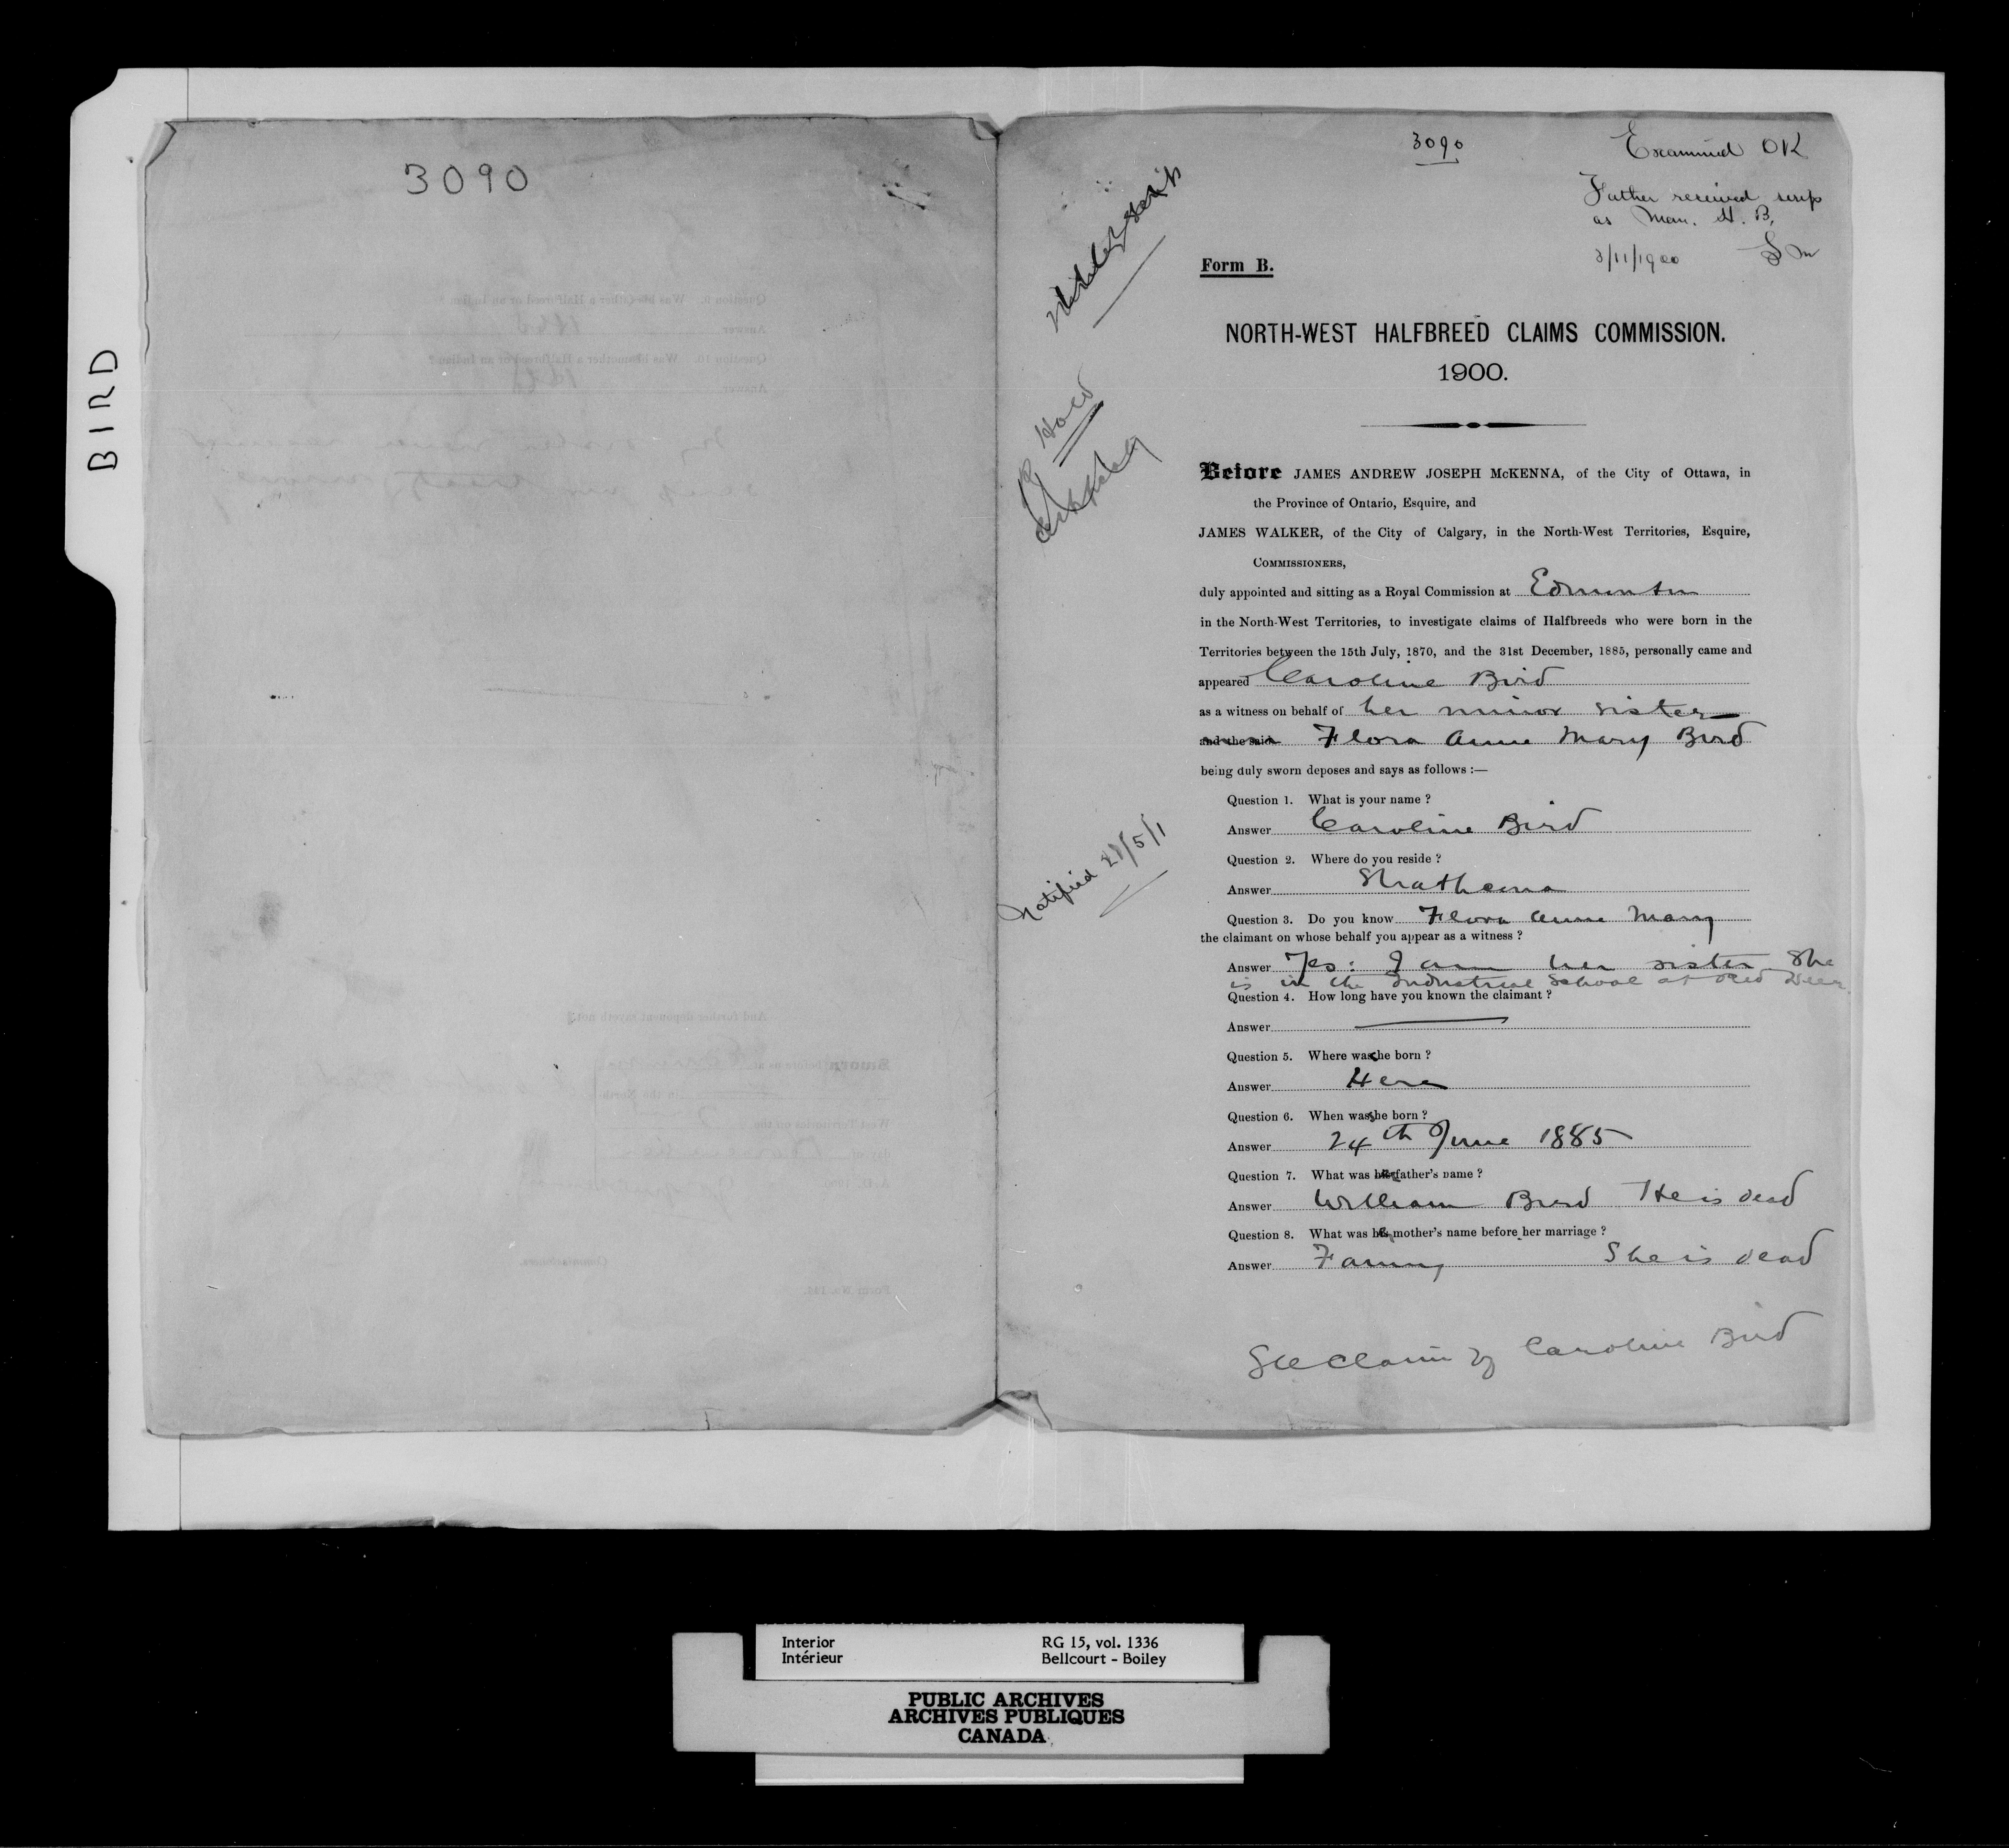 BIRD
3090
3090
Examined OK
Father received scrip
as Man. H. B.
2/11/1900
Form B.
NORTH-WEST HALFBREED CLAIMS COMMISSION.
1900.
Before JAMES ANDREW JOSEPH McKENNA, of the City of Ottawa, in
the Province of Ontario, Esquire, and
JAMES WALKER, of the City of Calgary, in the North-West Territories, Esquire,
COMMISSIONERS,
duly appointed and sitting as a Royal Commission at Edmonton
in the North-West Territories, to investigate claims of Halfbreeds who were born in the
Territories between the 15th July, 1870, and the 31st December, 1885, personally came and
appeared Caroline Bird
as a witness on behalf of her minor sister
and the said Flora Anne Mary Bird
being duly sworn deposes and says as follows :—
Question 1. What is your name ?
Answer Caroline Bird
Question 2. Where do you reside ?
Answer Strathcona
Question 3. Do you know Flora Anne Mary
the claimant on whose behalf you appear as a witness ?
Answer Yes: I am her sister She
is in the Industrial School at Red Deer.
Question 4. How long have you known the claimant ?
Answer
Question 5. Where was she born ?
Answer Here
Question 6. When was she born ?
Answer 24th June 1885
Question 7. What was her father's name ?
Answer William Bird He is dead
Question 8. What was her mother's name before her marriage ?
Answer Fanny She is dead
See Claim of Caroline Bird
Notified 21/5/1
Interior
Intérieur
RG 15, vol. 1336
Bellcourt - Boiley
PUBLIC ARCHIVES
ARCHIVES PUBLIQUES
CANADA